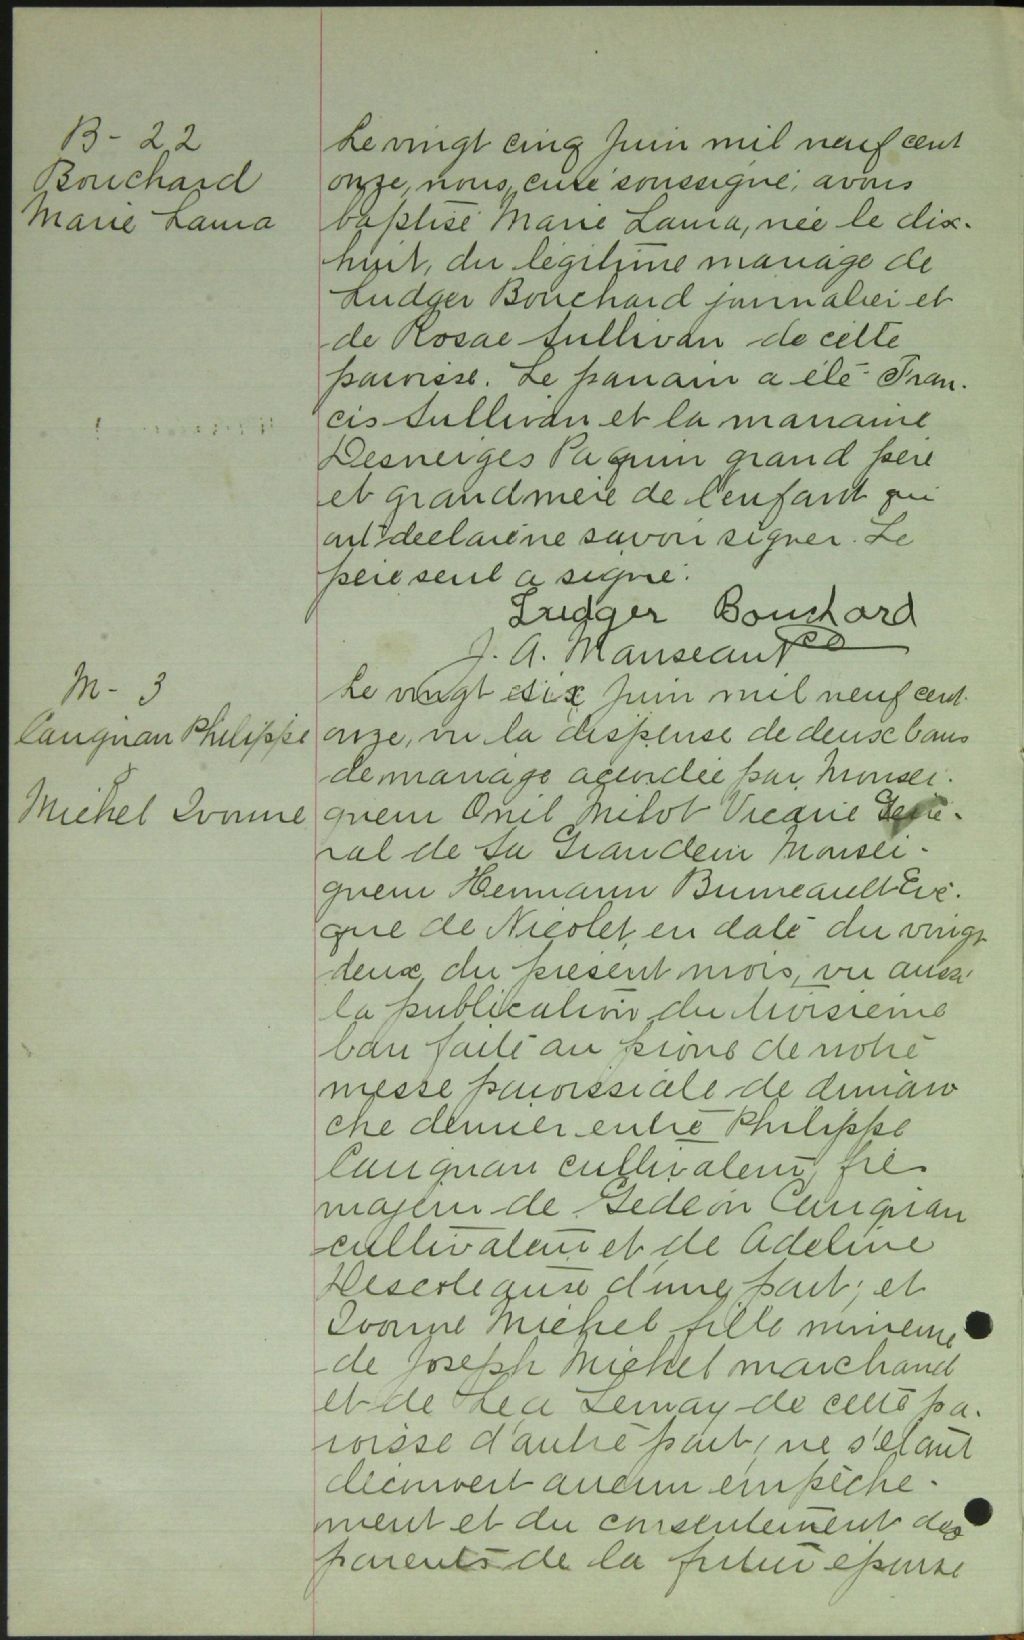 B- 22
Bouchard
Marie Laura
Le vingt cinq Juin mil neuf cent
onze, nous, curé soussigné, avons
baptisé Marie Laura, née le dix-
huit, du légitime mariage de
Ludger Bouchard journalier et
de Rosae Sullivan de cette
paroisse. Le parrain a été Fran-
cis Sullivan et la marraine
Desneiges Paquin grand père
et grand mère de l'enfant qui
ont déclaré ne savoir signer. Le
père seul a signé.
Ludger Bouchard
J. A. Manseau
M- 3
Carignan Philippe
Michel Ivonne
Le vingt six Juin mil neuf cent
onze, vu la dispense de deux bans
de mariage accordée par Monsei-
gneur Onil Milot Vicaire Géné-
ral de Sa Grandeur Monsei-
gneur Hermann Bruneault Evê-
que de Nicolet, en date du vingt
deux, du présent mois, vu aussi
la publication du troisième
ban faite au prône de notre
messe paroissiale de diman
che dernier entre Philippe
Carignan cultivateur, fils
majeur de Gedéon Carignan
cultivateur et de Adeline
Descoteaux d'une part; et
Ivonne Michel fille mineure
de Joseph Michel marchand
et de Léa Lemay de cette pa-
roisse d'autre part, ne s'étant
découvert aucun empêche-
ment et du consentement des
parents de la future épouse